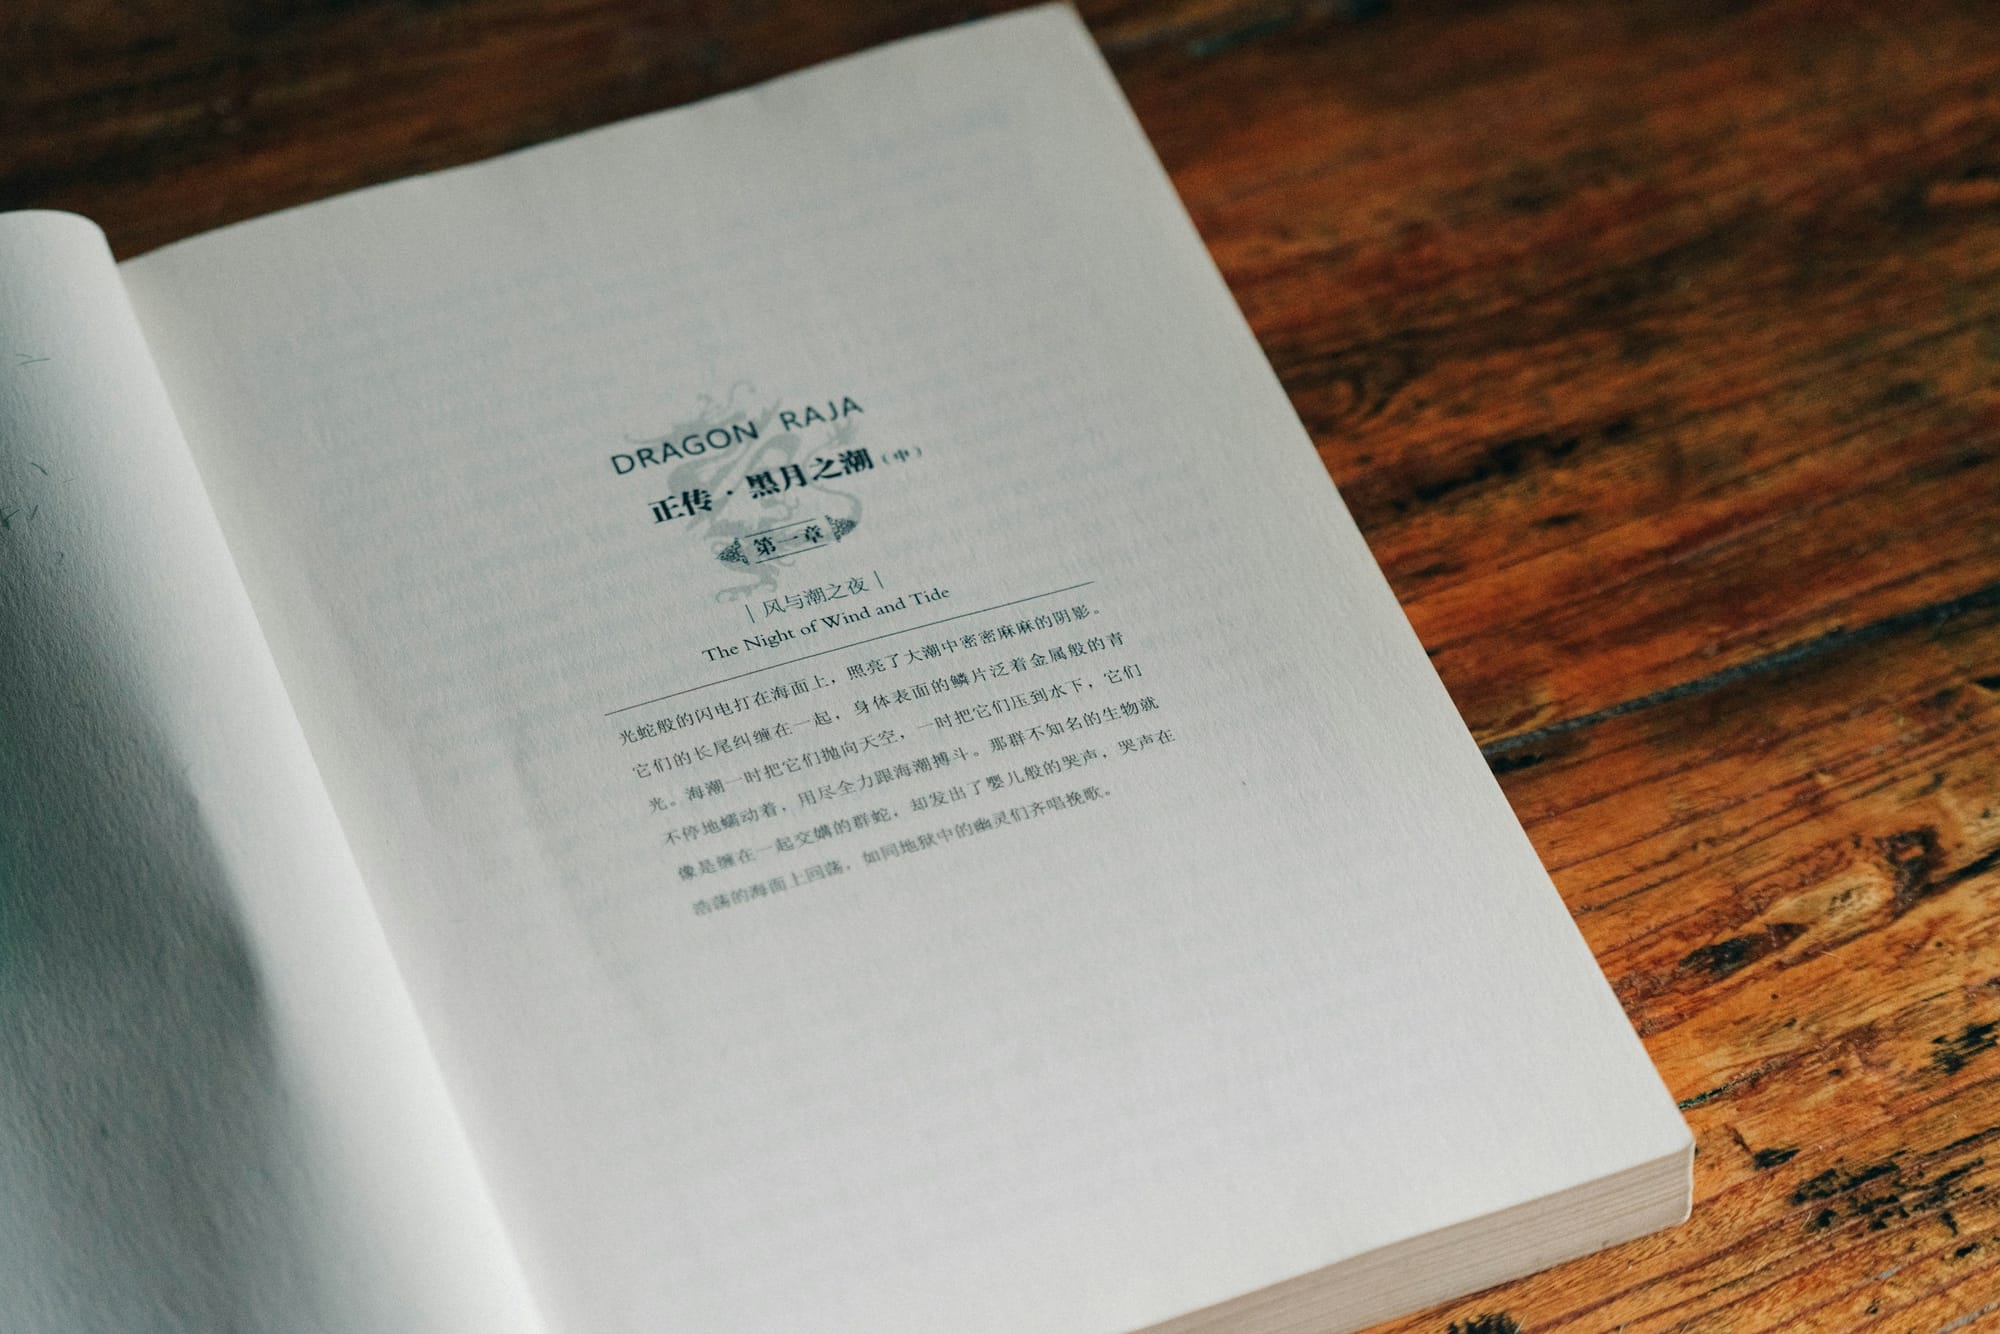 DRAGON RAJA
正传·黑月之潮（中）
第一章
| 风与潮之夜 |
The Night of Wind and Tide
光蛇般的闪电打在海面上，照亮了大潮中密密麻麻的阴影。
它们的长尾纠缠在一起，身体表面的鳞片泛着金属般的青
光。海潮一时把它们抛向天空，一时把它们压到水下，它们
不停地蠕动着，用尽全力跟海潮搏斗。那群不知名的生物就
像是缠在一起交媾的群蛇，却发出了婴儿般的哭声，哭声在
浩荡的海面上回荡，如同地狱中的幽灵们齐唱挽歌。